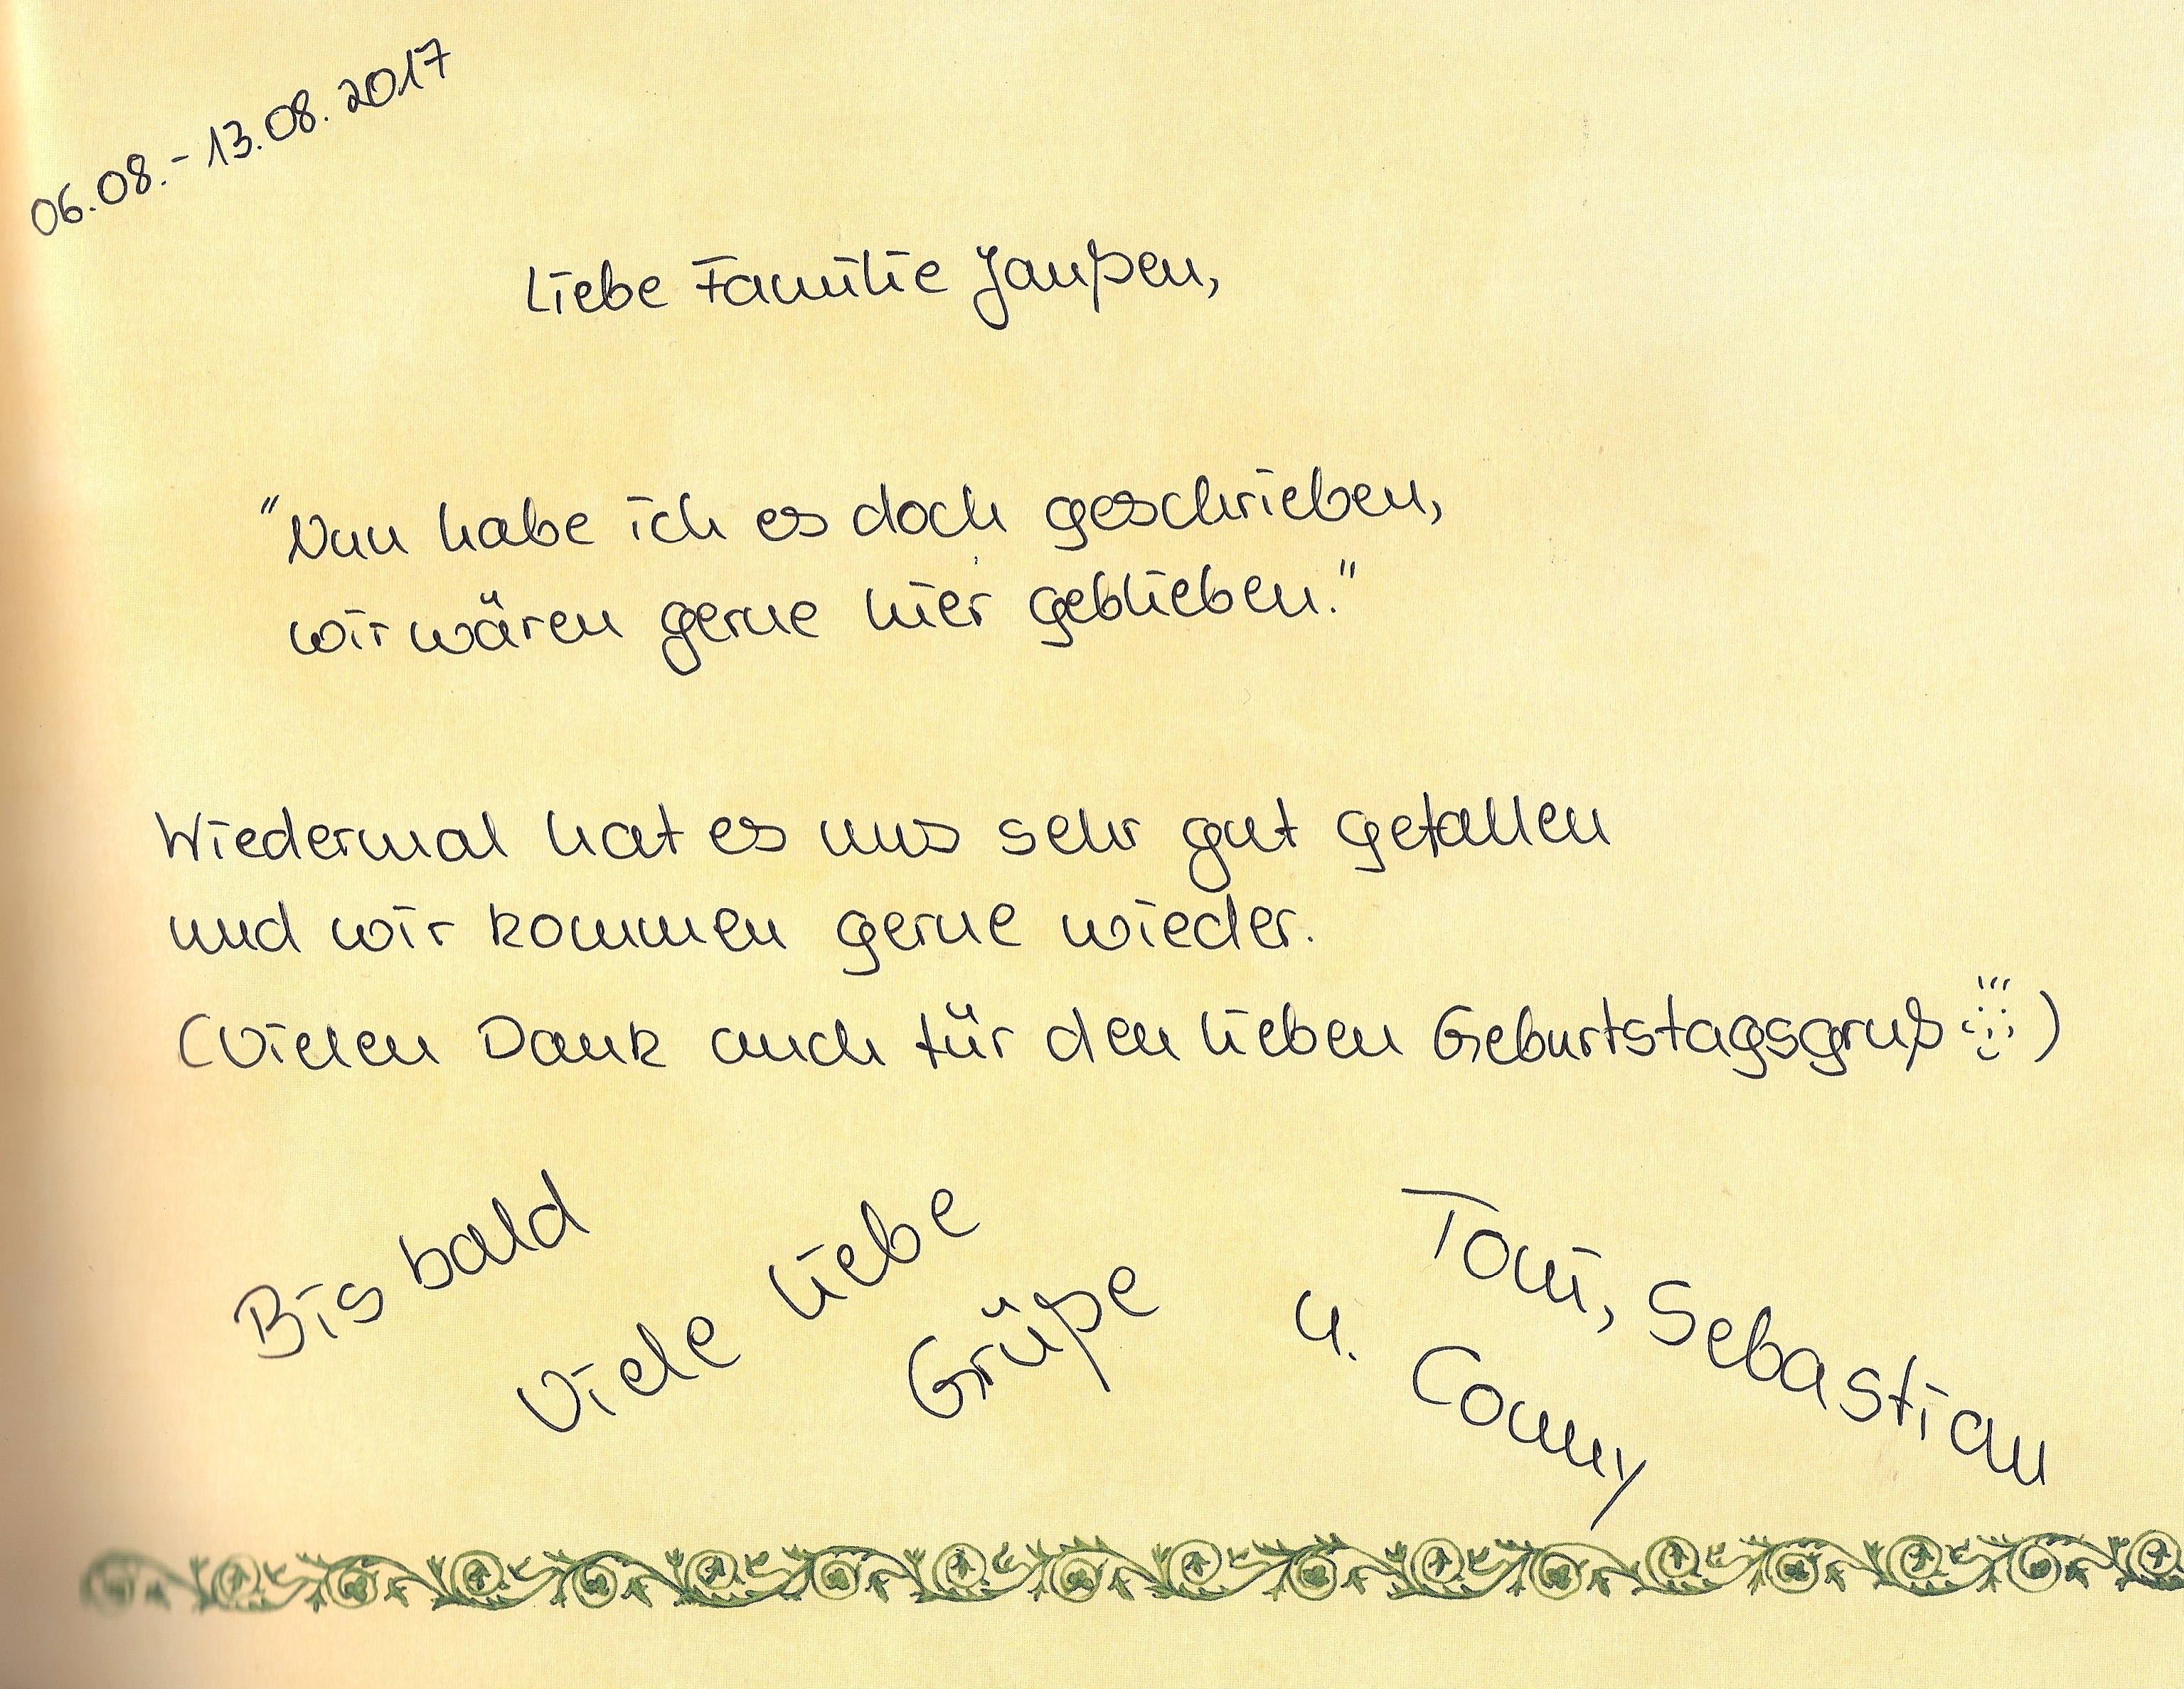 06.08.- 13.08.2017
Liebe Familie Janßen,
"Nun habe ich es doch geschrieben,
wir wären gerne hier geblieben."
Wiedermal hat es uns sehr gut gefallen
und wir kommen gerne wieder.
(Vielen Dank auch für den lieben Geburtstagsgruß)
Bis bald
Viele liebe
Grüße
Tomi, Sebastian
u. Conny